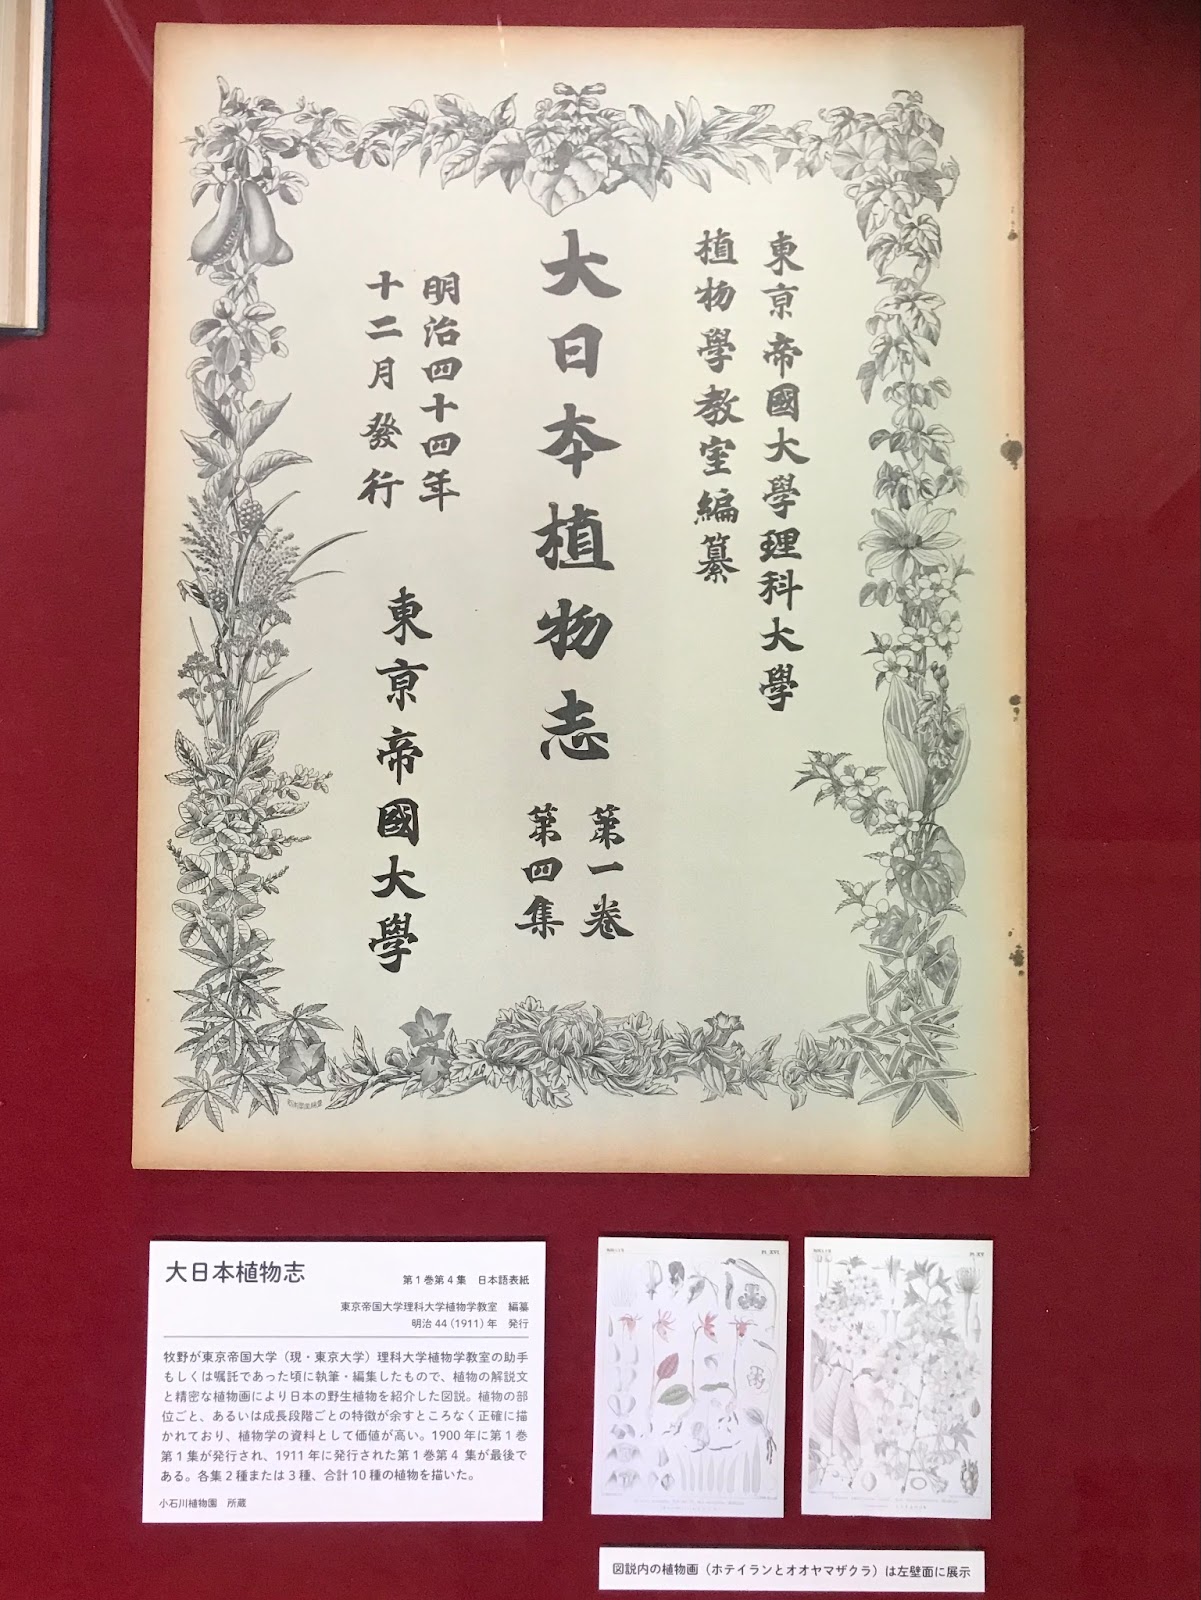 東京帝國大學理科大學
植物學教室編纂
大日本植物志
第一卷
第四集
明治四十四年
十二月發行
東京帝國大學
大日本植物志
第1巻第4集 日本語表紙
東京帝国大学理科大学植物学教室 編纂
明治44(1911)年 発行
牧野が東京帝国大学(現・東京大学)理科大学植物学教室の助手
もしくは嘱託であった頃に執筆・編集したもので、植物の解説文
と精密な植物画により日本の野生植物を紹介した図説。植物の部
位ごと、あるいは成長段階ごとの特徴が余すところなく正確に描
かれており、植物学の資料として価値が高い。1900年に第1巻
第1集が発行され、1911年に発行された第1巻第4 集が最後で
ある。各集2種または3種、合計10種の植物を描いた。
小石川植物園 所蔵
Pl. XVI.
Pl. XV.
図説内の植物画(ホテイランとオオヤマザクラ)は左壁面に展示